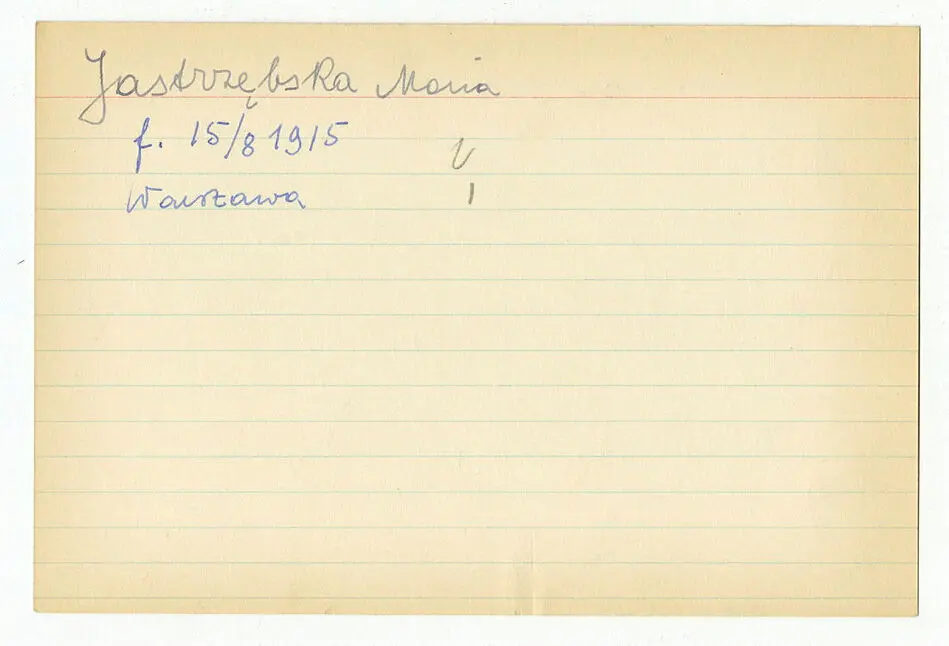 Jastrzębska Maria
f. 15/8 1915
Warszawa